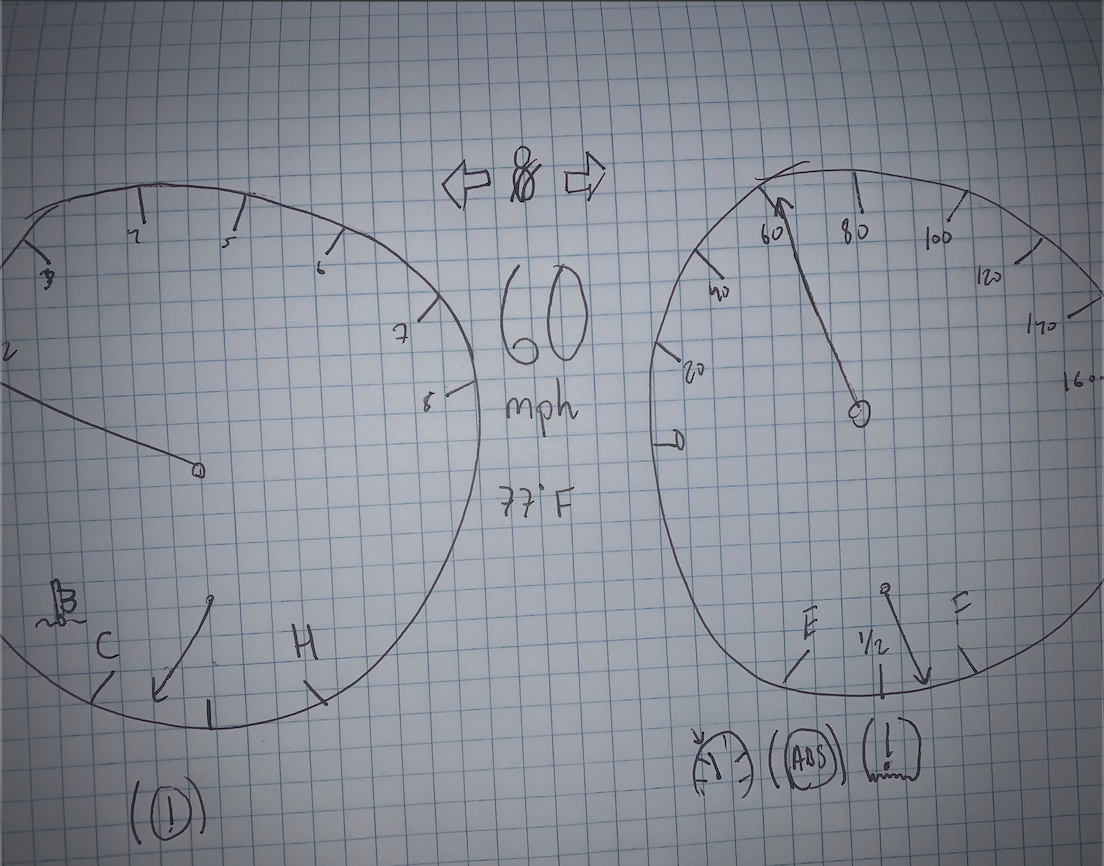 2
3
4
5
6
7
8
60
mph
77°F
0
20
40
60
80
100
120
140
160
C
H
E
1/2
F
!
ABS
!